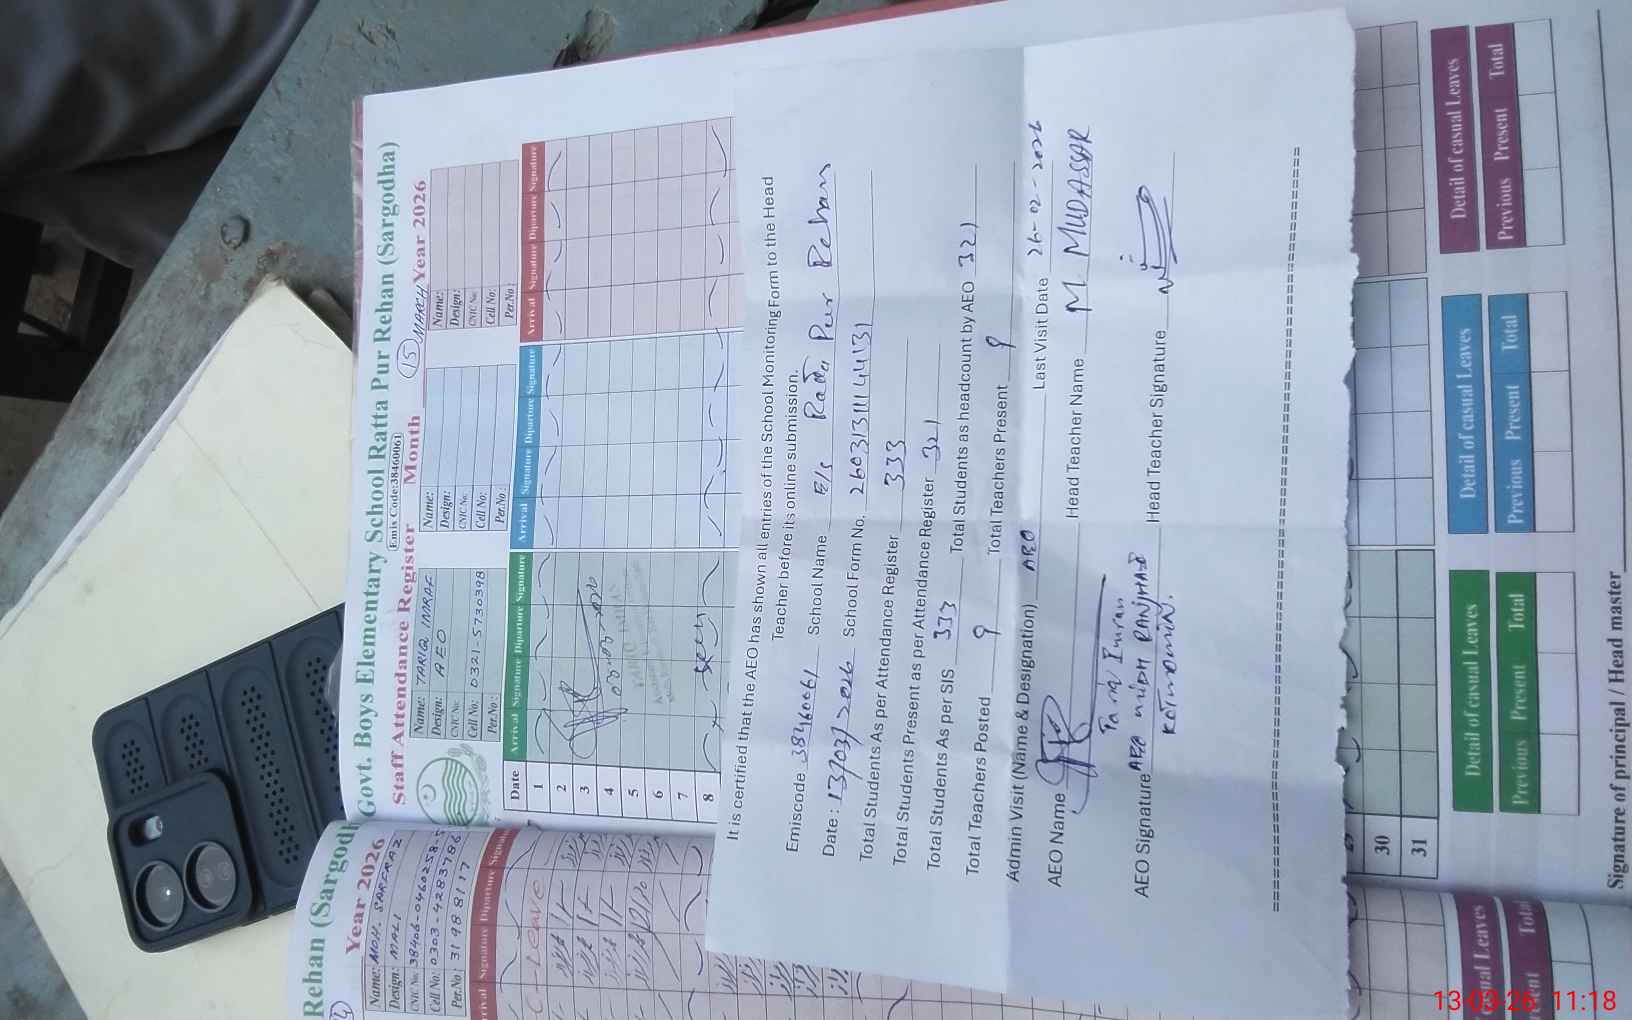 Rehan (Sargodh
Year 2026
Name: MOH. SARFRAZ
Design: MALI
CNIC No: 38406-0460258-5
Cell No: 0303-4283786
Per.No: 31988117
rrival Signature Diparture Signatu
C-Leave
Govt. Boys Elementary School Ratta Pur Rehan (Sargodha)
Emis Code:38460061
Staff Attendance Register Month (15) MARCH Year 2026
Name: TARIQ IMRAN
Design: AEO
CNIC No:
Cell No: 0321-5730398
Per.No:
Name:
Design:
CNIC No:
Cell No:
Per.No:
Name:
Design:
CNIC No:
Cell No:
Per.No:
Date Arrival Signature Diparture Signature Arrival Signature Diparture Signature Arrival Signature Diparture Signature
1
2
3
4
5
6
7
8
It is certified that the AEO has shown all entries of the School Monitoring Form to the Head
Teacher before its online submission.
Emiscode 38460061 School Name E/s Ratta Pur Rehan
Date: 13/03/2026 School Form No. 260313111 44131
Total Students As per Attendance Register 333
Total Students Present as per Attendance Register 321
Total Students As per SIS 333 Total Students as headcount by AEO 321
Total Teachers Posted 9 Total Teachers Present 9
Admin Visit (Name & Designation) AEO Last Visit Date 26-02-2026
AEO Name Head Teacher Name M. MUDASSAR
Tariq Imran
AEO Signature AEO Head Teacher Signature
================
30
31
Detail of casual Leaves
Previous Present Total
Detail of casual Leaves
Previous Present Total
Detail of casual Leaves
Previous Present Total
sual Leaves
resent Total
Signature of principal / Head master
13-03-26 11:18